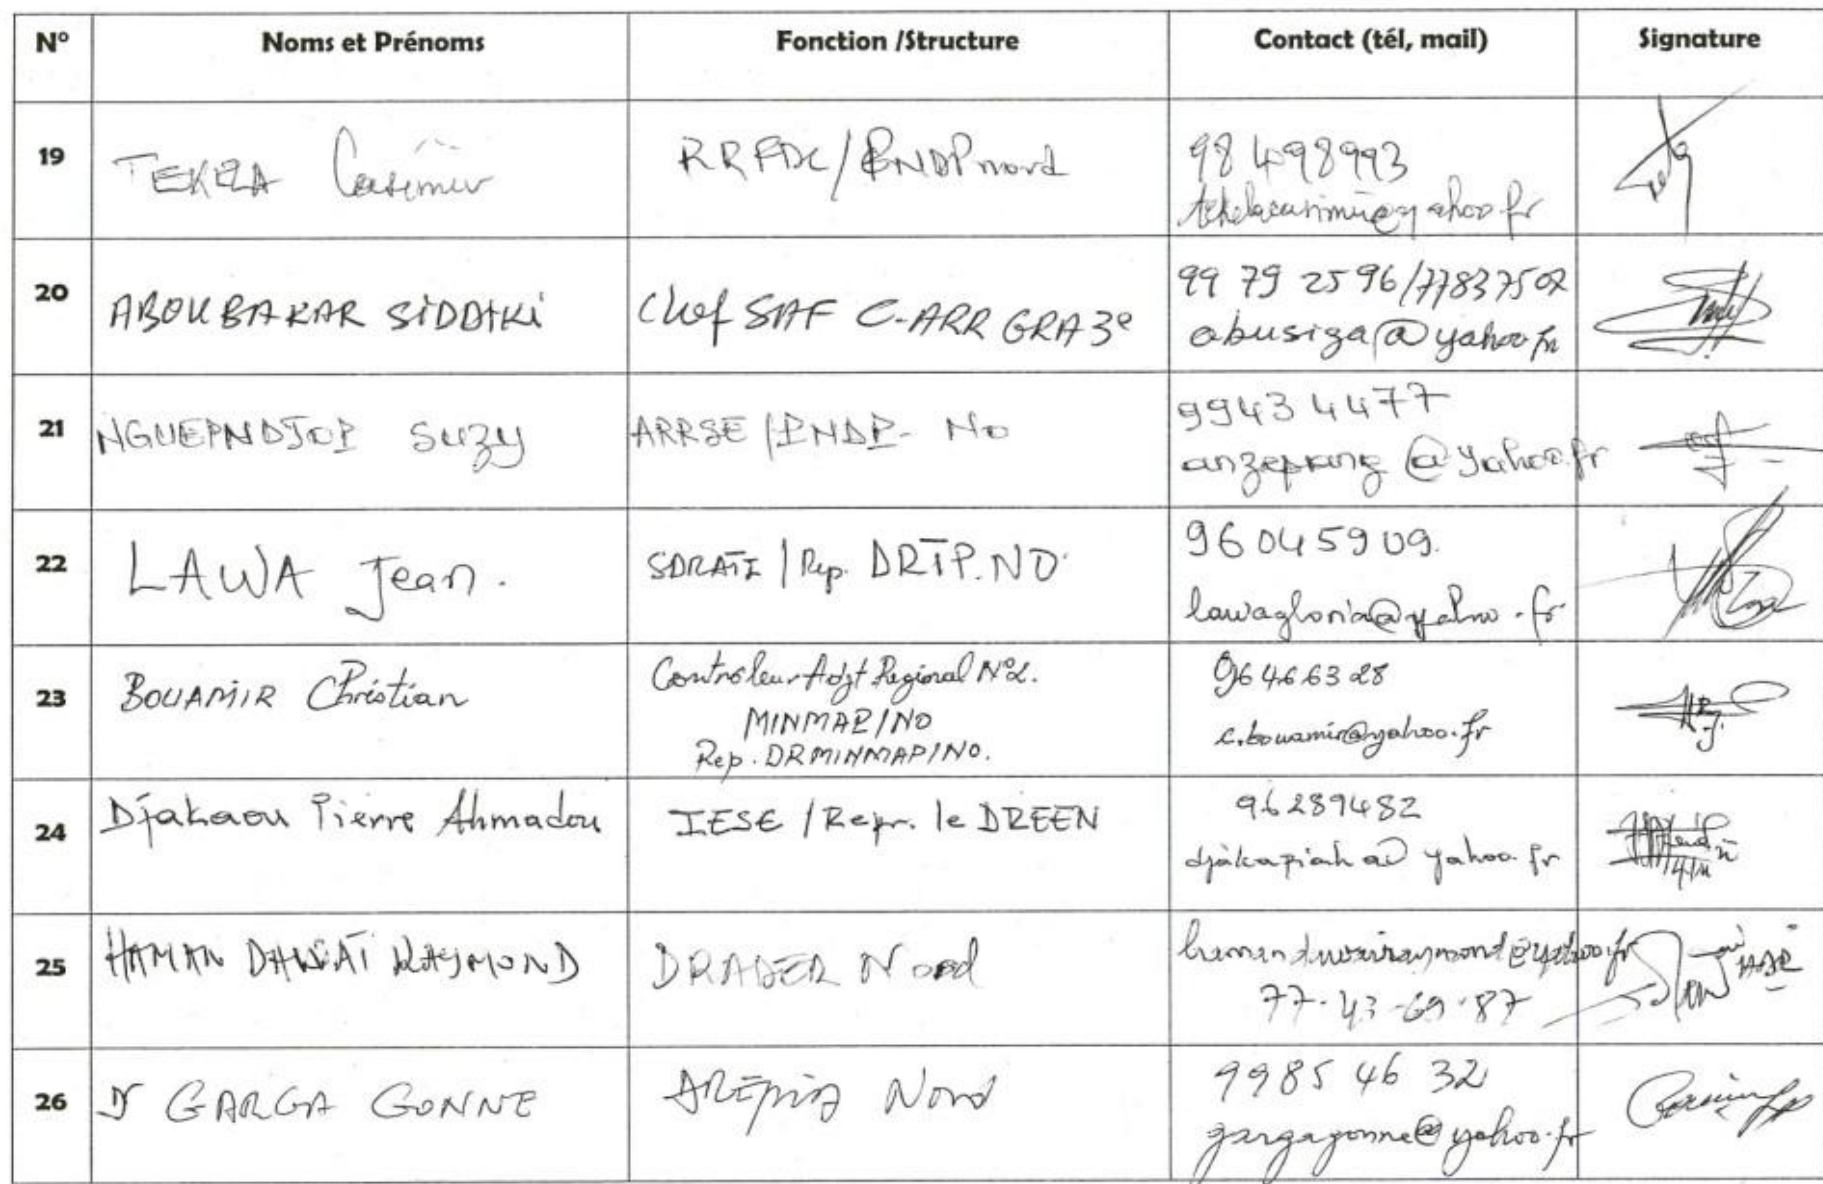 N° Noms et Prénoms Fonction /Structure Contact (tél, mail) Signature
19 TEKELA Casimir RRFDC/PNDP nord 98 498993
yahoo.fr
20 ABOUBAKAR SIDDIKI Chef SAF C-ARR GRA 3e 99 79 25 96/77837502
abusiga@yahoo.fr
21 NGUEPNDJOP Suzy ARRSE/PNDP- NO 9943 4477
anzepang@yahoo.fr
22 LAWA Jean. SDRATI / Rep. DRTP.NO 96 04 59 09.
lawagloria@yahoo.fr
23 BOUAMIR Christian Controleur Adjt Regional N°2. 96 46 63 28
MINMAP/NO c.bouamir@yahoo.fr
Rep. DRMINMAP/NO.
24 Djakaou Pierre Ahmadou IESE / Repr. le DREEN 96289482
djakapiah@yahoo.fr
25 HAMAN DAWAI RAYMOND DRADER Nord
77-43-69-87
26 Dr GARGA GONNE Nord 9985 46 32
gargagonne@yahoo.fr